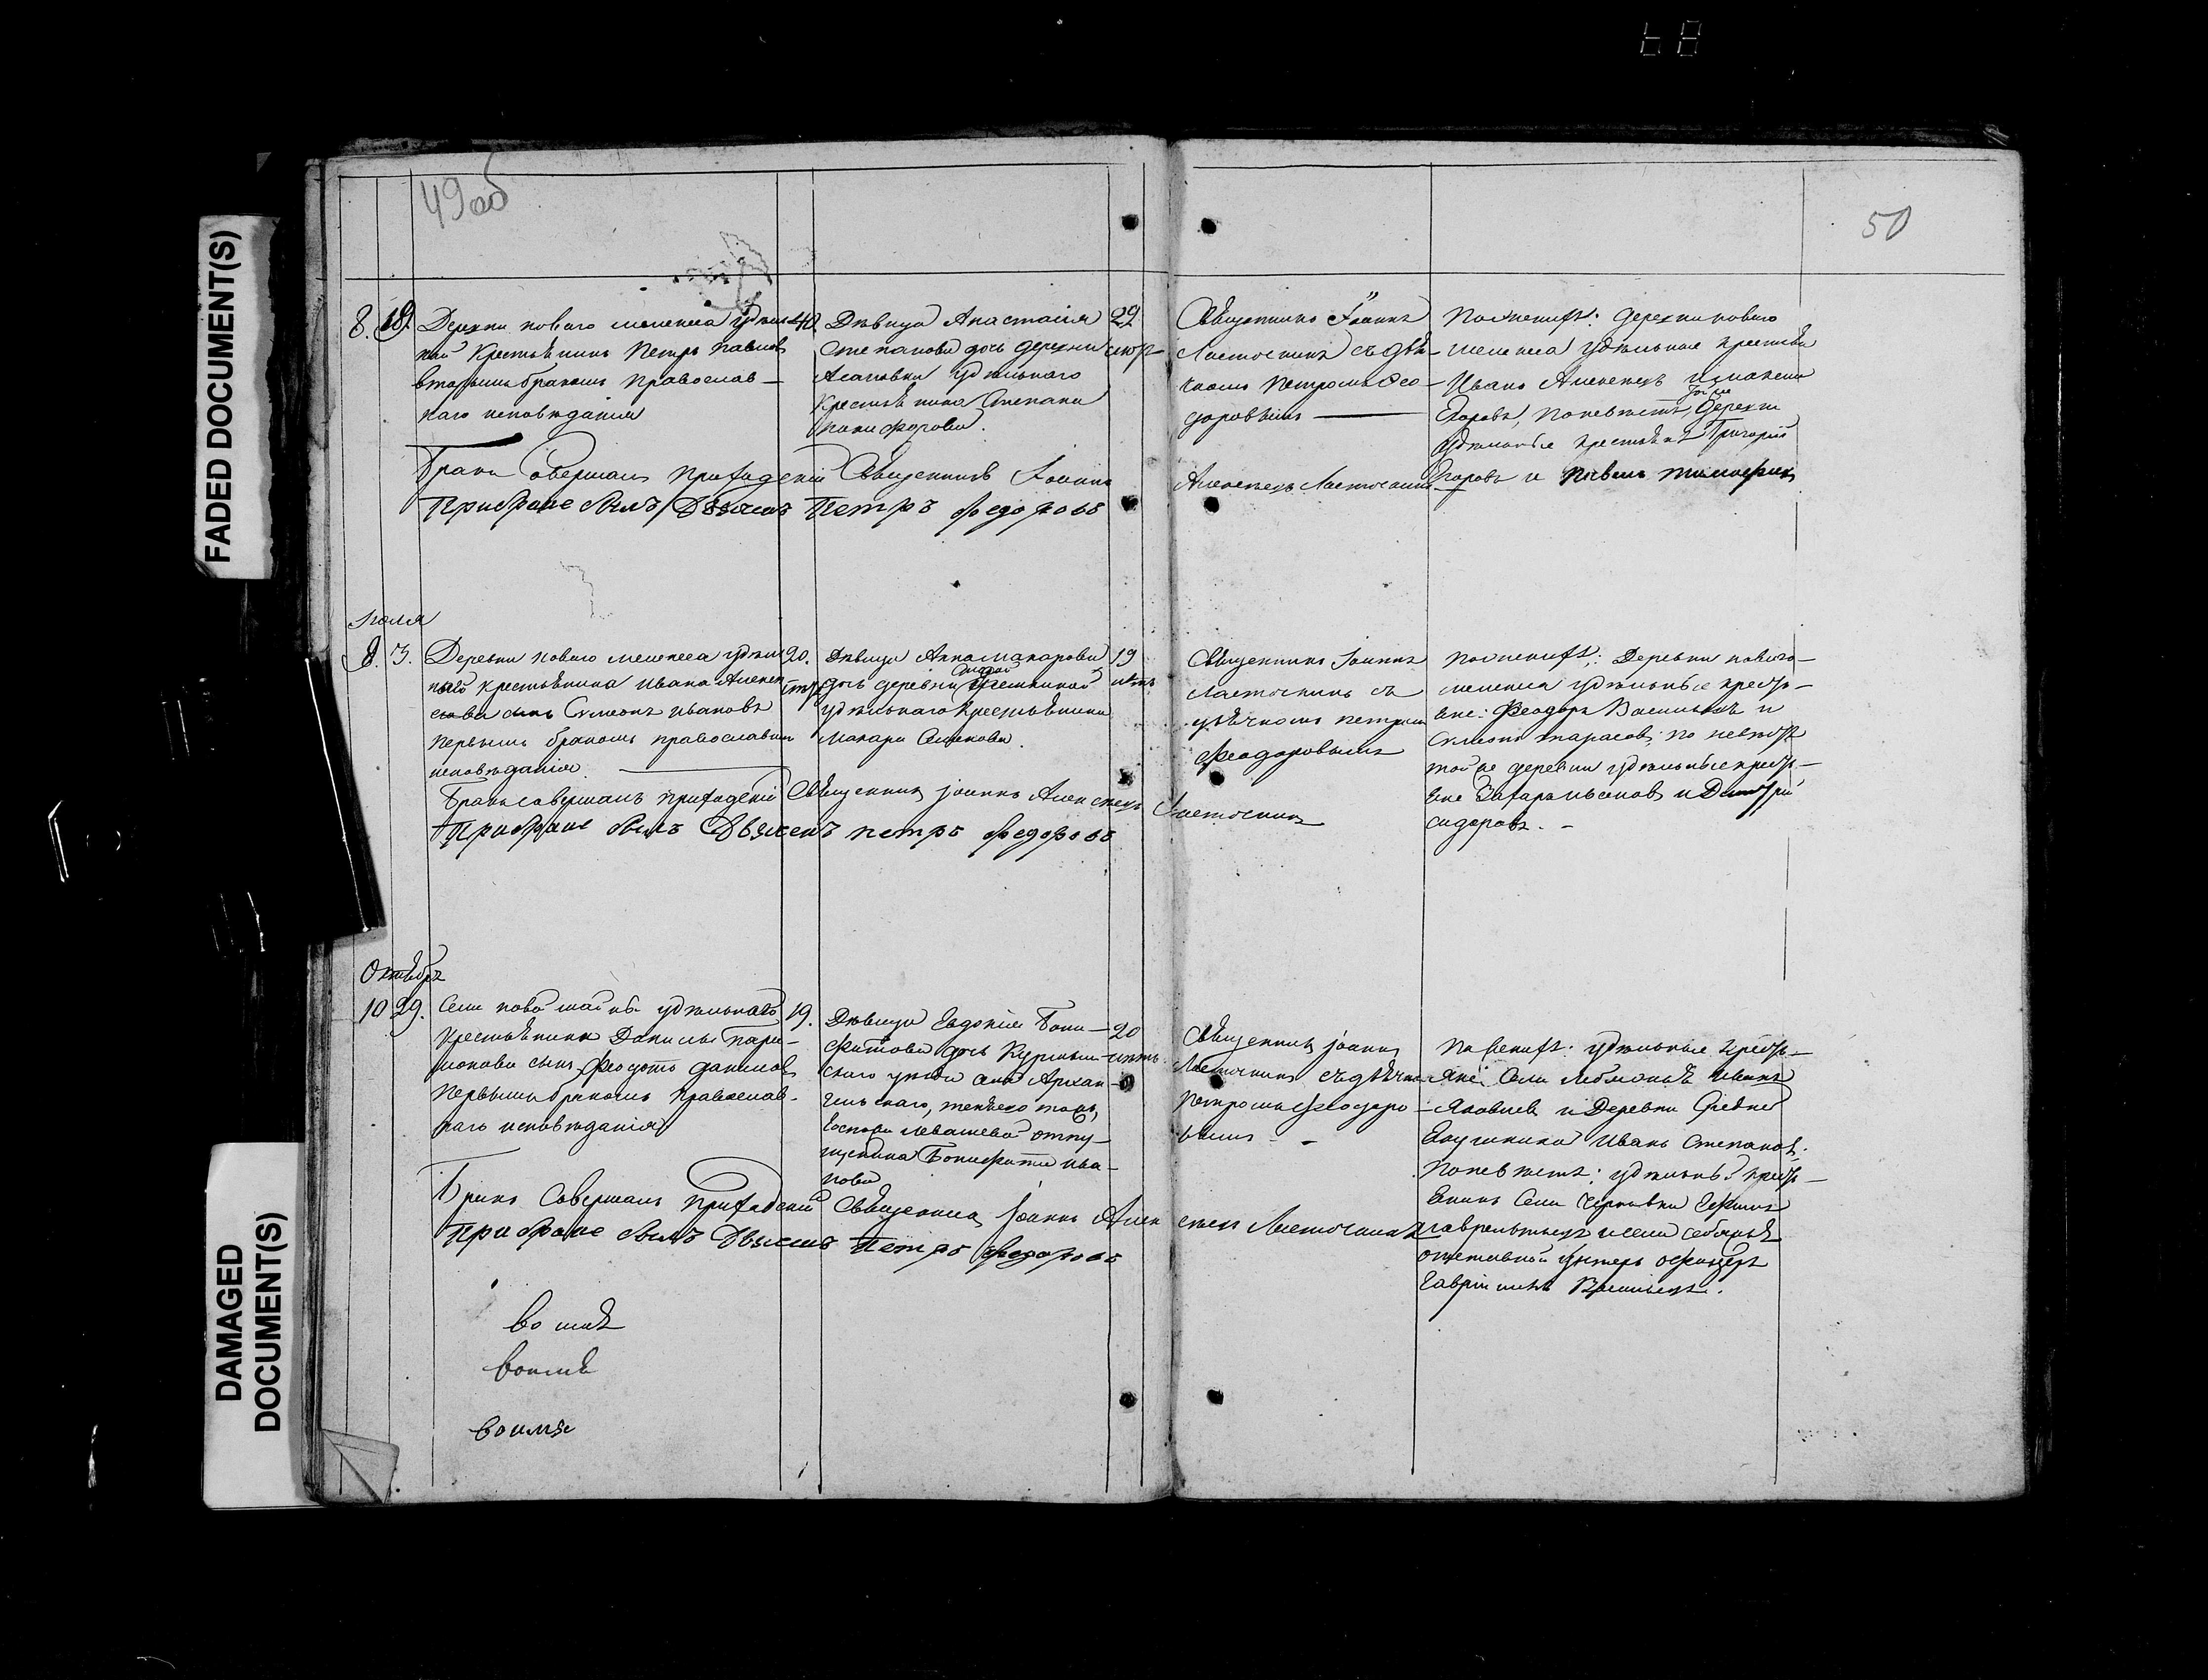 FADED DOCUMENT(S)
DAMAGED
DOCUMENT(S)
49об
50
8. 18. Деревни новаго мелекеса удѣль-
ной крестьянинъ Петръ Павловъ
вторымъ бракомъ православ-
наго исповѣданія
40.
Дѣвица Анастасія
Степанова дочь деревни
удѣльнаго
крестьянина Степана
Никифорова.
29
Священникъ Іоаннъ
Ласточкинъ съ дья-
чкомъ Петромъ Ѳео-
доровымъ
По женихѣ: деревни новаго
мелекеса удѣльные крестьяне
Иванъ Алексеевъ и
Егоровъ, по невѣстѣ, деревни
удѣльные крестьяне Григорій
Егоровъ и
Бракъ совершалъ приходскій Священникъ Іоаннъ Алексеевъ Ласточкинъ
При браке былъ Дьячекъ Петръ Федоровъ
Іюля
8. 3. Деревни новаго мелекеса удѣль-
наго крестьянина Ивана Алексе-
ева сынъ Симеонъ Ивановъ
первымъ бракомъ православнаго
исповѣданія
20.
Дѣвица Анна Макарова
дочь деревни
удѣльнаго крестьянина
Макара
19
лѣтъ
Священникъ Іоаннъ
Ласточкинъ съ
дьячкомъ Петромъ
Феодоровымъ
По женихѣ: Деревни новаго
мелекеса удѣльные кресть-
яне: Феодоръ Васильевъ и
Симеонъ Тарасовъ; по невѣстѣ
той же деревни удѣльные кресть-
яне Захаръ и Дмитрій
Сидоровъ.
Бракъ совершалъ приходскій Священникъ Іоаннъ Алексеевъ Ласточкинъ
При браке былъ Дьячекъ Петръ Федоровъ
Октябрь
10 29. Села новой майны удѣльнаго
крестьянина Данилы
сынъ Феодотъ Даниловъ
первымъ бракомъ православ-
наго исповѣданія
19.
Дѣвица Евдокія Бони-
фатова дочь Курмыш-
скаго уѣзда села Архан-
гельскаго,
Госпожи Левашевой отпу-
щенника Бонифатія Ива-
нова
20
лѣтъ
Священникъ Іоаннъ
Ласточкинъ съ дьячко-
Петромъ Феодоро-
вымъ
По женихѣ: удѣльные кресть-
яне: Села Иванъ
Яковлевъ и Деревни Средней
Иванъ Степановъ.
По невѣстѣ: удѣльный кресть-
янинъ Села Ефимъ
Гаврильевъ и села
отставной унтеръ офицеръ
Гаврилъ Васильевъ.
Бракъ Совершалъ приходскій Священникъ Іоаннъ Алексеевъ Ласточкинъ
При браке былъ Дьячекъ Петръ Федоровъ
воимя